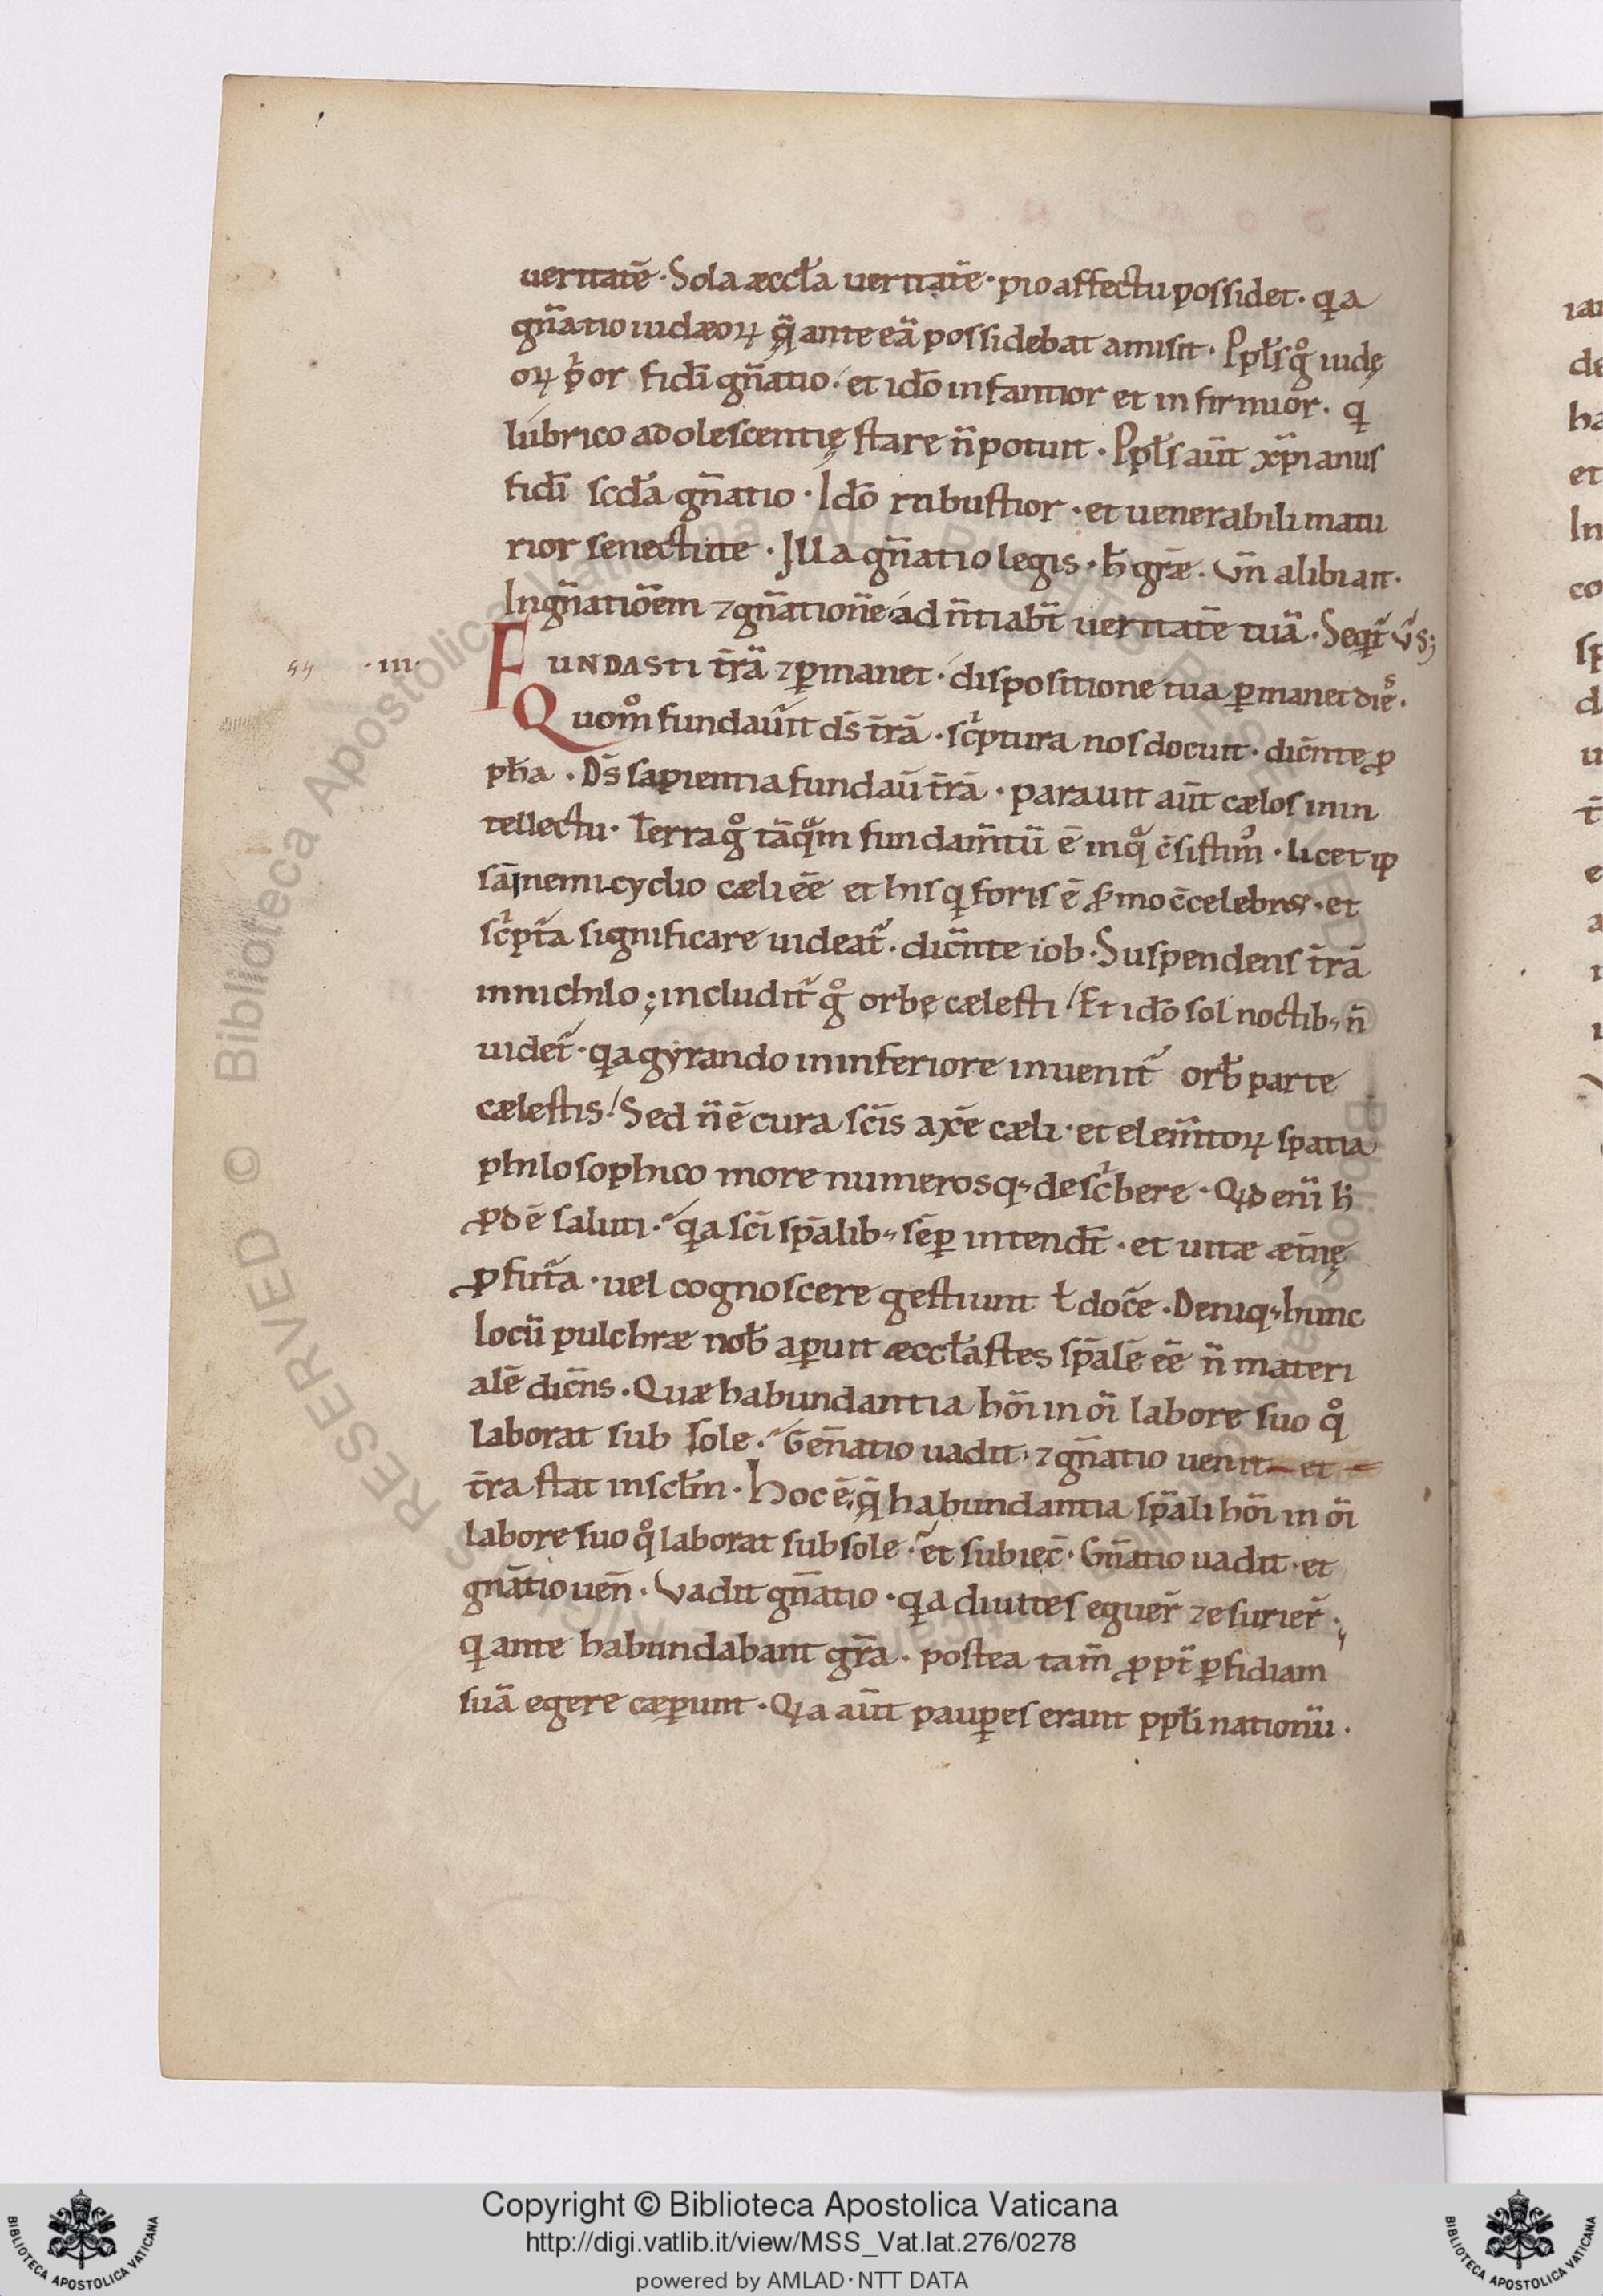 ueritatē · Sola æccl̄a ueritatē · pio affectu possidet · qa
gn̄atio iudæoꝝ q̄ ante eā possidebat amisit · Ppl̄s gͦ iudę
oꝝ pͥor fidī gn̄atio · et idō infantior et infirmior · q
lubrico adolescentię stare n̄ potuit · Ppl̄s aūt xp̄ianus
fidī scd̄a gn̄atio · Idō robustior · et uenerabili matu
rior senectute · Illa gn̄atio legis · h̄ gr̄æ · Vn̄ alibi ait ·
In gn̄atiōem ⁊ gn̄ationē adn̄tiabt̄ ueritatē tuā · Seqt̄ ūs;
44 · III · FUNDASTI t̄rā ⁊ ꝑmanet · dispositione tua ꝑmanet dies ·
Quom̊ fundauit̄ ds̄ t̄rā · scͥptura nos docuit · dicn̄te ꝓ
ph̄a · Ds̄ sapientia fundaū t̄rā · parauit aūt cælos in in
tellectu · Terra gͦ tāqͣm fundam̄tū ē in qͦ c̄sistim᷒ · licet ip
sā in emicyclio cæli eē et his q foris ē ꝓmo c̄celebres · et
scͥpt̄a significare uideat̄ · dicn̄te iob · Suspendens t̄rā
in nichilo ; includit̄ gͦ orbe cælesti / Et idō sol noctib; n̄
uidet̄ · qa gyrando in inferiore inuenit̄ orb̄ parte
cælestis / Sed n̄ ē cura sc̄is axē cæli · et elem̄toꝝ spatia
philosophico more numerosq; descͥbere · Qd eni h̄
ꝓdē saluti · qa sc̄i sp̄alib; sēꝑ intendt̄ · et uitæ æt̄nę
ꝓfut̄a · uel cognoscere gestiunt ł docē · Deniq; hunc
locū pulchræ nob̄ aꝑuit æccl̄astes sp̄alē eē n̄ materi
alē dicn̄s · Quæ habundantia hōi in ōi labore suo qͦ
laborat sub sole · Gen̄atio uadit · ⁊ gn̄atio uenit et
t̄ra stat in scl̄m · Hoc ē, q̄ habundantia sp̄ali hōi in ōi
labore suo qͦ laborat sub sole · et subiec̄ · Gn̄atio uadit · et
gnāt̄io uen̄ · Vadit gn̄atio · qa diuites eguer̄ ⁊ esurier̄ ·
q ante habundabant gr̄a · postea tam̄ ꝓpt̄ ꝑfidiam
suā egere cæꝑunt · Qa aūt pauꝑes erant ppl̄i nationū ·
ia
de
ha
et
In
co
sp
d
u
t̄
e
a
Copyright © Biblioteca Apostolica Vaticana
http://digi.vatlib.it/view/MSS_Vat.lat.276/0278
powered by AMLAD·NTT DATA
BIBLIOTECA APOSTOLICA VATICANA
BIBLIOTECA APOSTOLICA VATICANA